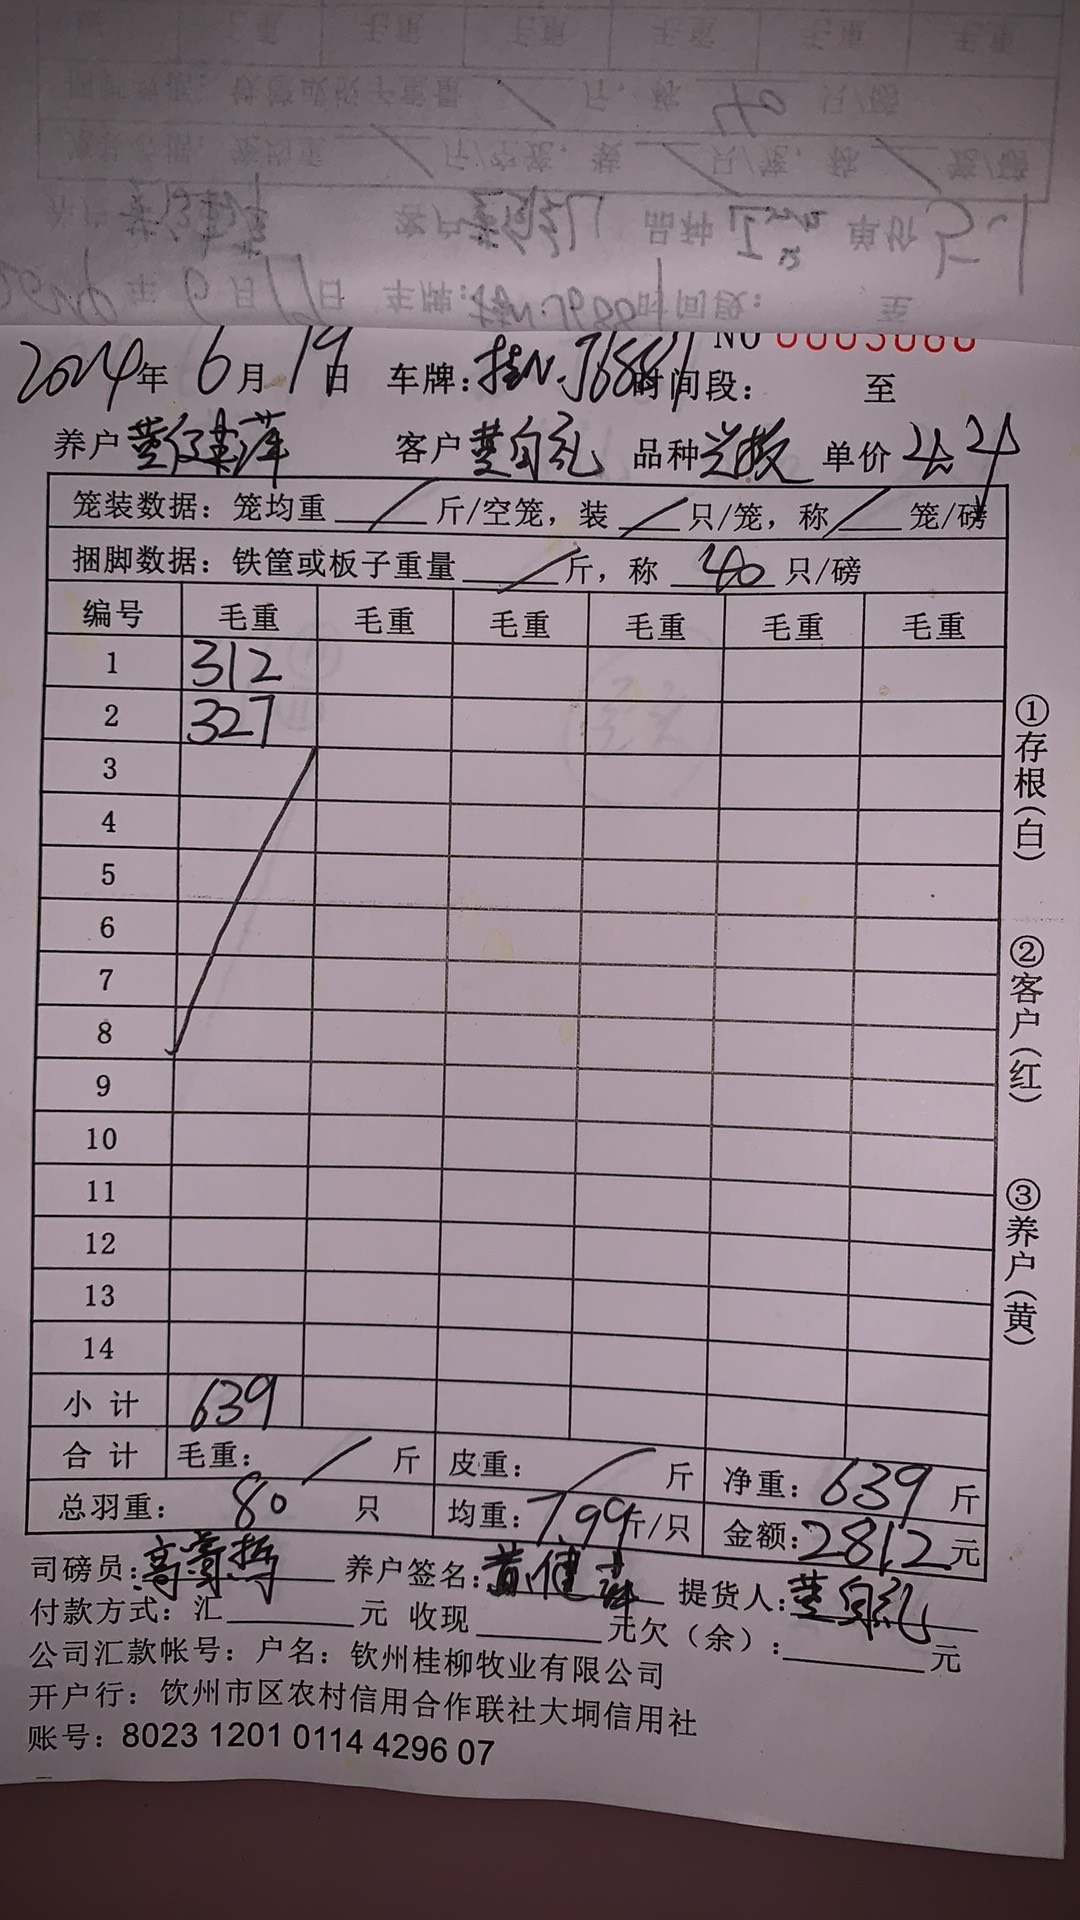 NO 0003060
2024年 6月19日 车牌:桂N·J6884 时间段: 至
养户 黄健萍 客户 黄自礼 品种 单价 4.4
笼装数据: 笼均重 / 斤/空笼, 装 / 只/笼, 称 / 笼/磅
捆脚数据: 铁筐或板子重量 / 斤, 称 40 只/磅
编号 毛重 毛重 毛重 毛重 毛重 毛重
1 312
2 327
3
4
5
6
7
8
9
10
11
12
13
14
小计 639
合计 毛重: / 斤 皮重: / 斤 净重: 639 斤
总羽重: 80 只 均重: 7.99 斤/只 金额: 2812 元
司磅员: 养户签名: 黄健萍 提货人: 黄自礼
付款方式: 汇 元 收现 元欠(余): 元
公司汇款帐号: 户名: 钦州桂柳牧业有限公司
开户行: 钦州市区农村信用合作联社大垌信用社
账号: 8023 1201 0114 4296 07
①存根(白)
②客户(红)
③养户(黄)